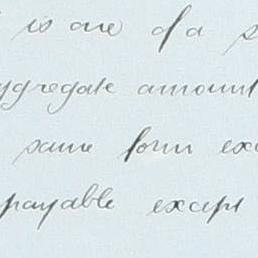 is one of a s
ggregate amount
same form exc
payable except